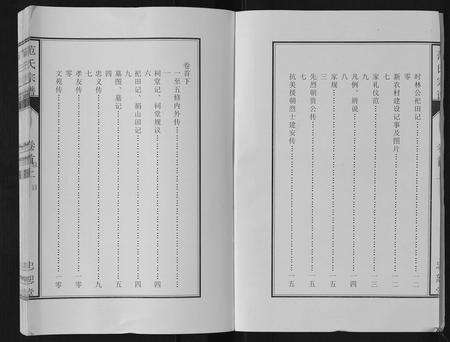 时林公祀田记……………………一二
零
新农村建设记事及图片……………………一二
七
家礼仪范……………………一二
九
凡例、谱说……………………一四
八
家规……………………一五
七
先烈朝贵公传……………………一五
七
抗美援朝烈士建安传……………………一五
卷首下
一至五修内外传……………………
一
祠堂记、祠堂规议……………………四
六
祀田记、捐山田记……………………四
九
墓图、墓记……………………五
四
忠义传……………………九
七
孝友传……………………一零
零
文苑传……………………一零
范氏宗谱
卷首上
忠恕堂